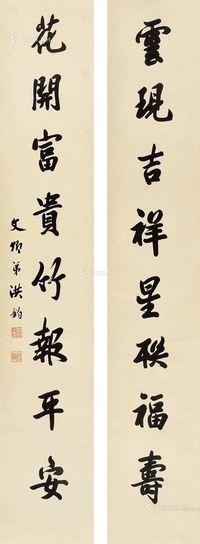 雲現吉祥星联福壽
花開富貴竹報平安
文卿弟洪鈞